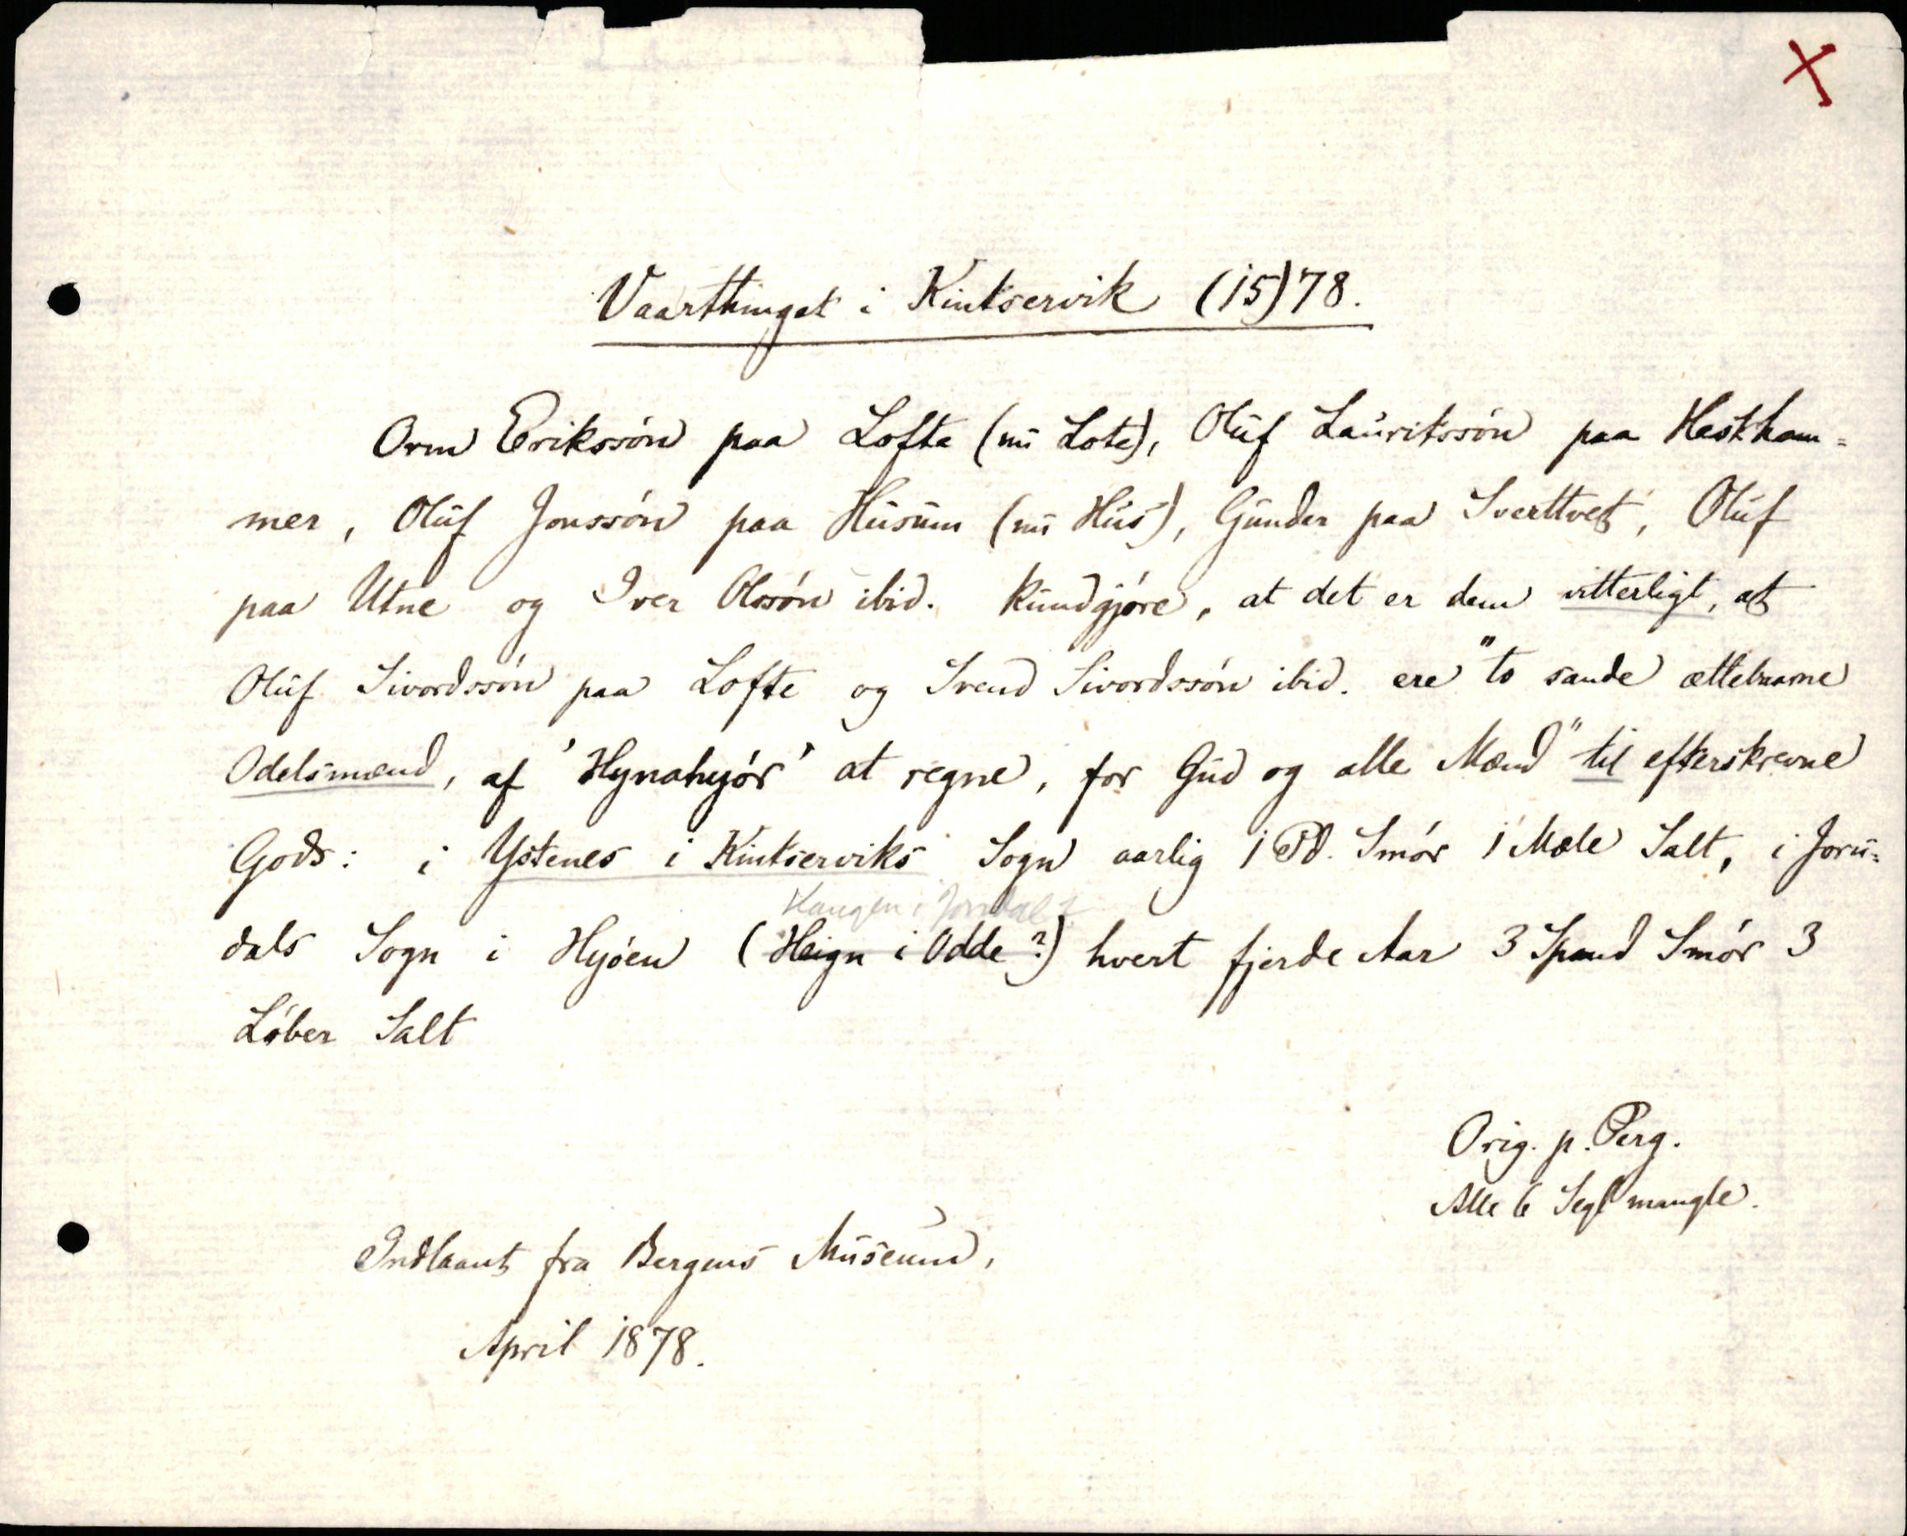 X
Vaarthinget i Kintservik (15)78.
Orm Erikssón paa Lofte (nu Lote), Oluf Lauritssón paa Hestham=
mer, Oluf Jonssón paa Husum (nu Hus), Gunder paa Sverttvet, Oluf
paa Utne og Iver Olssón ibid. kundgjóre, at det er dem vitterligt, at
Oluf Sivordssón paa Lofte og Svend Sivordssón ibid. ere "to sande ættebaarne
Odelsmænd, af 'Hynahyór' at regne, for Gud og alle Mænd" til efterskrevne
Gods: i Ystenes i Kintserviks Sogn aarlig 1 Pd. Smór 1 Mæle Salt, i Joru=
Haugen i Jondal?
dals Sogn i Hyóen (Heign i Odde?) hvert fjerde Aar 3 Spand Smór 3
Lóber Salt
Orig. p. Perg.
Alle 6 Segl mangle.
Indlaant fra Bergens Museum,
April 1878.